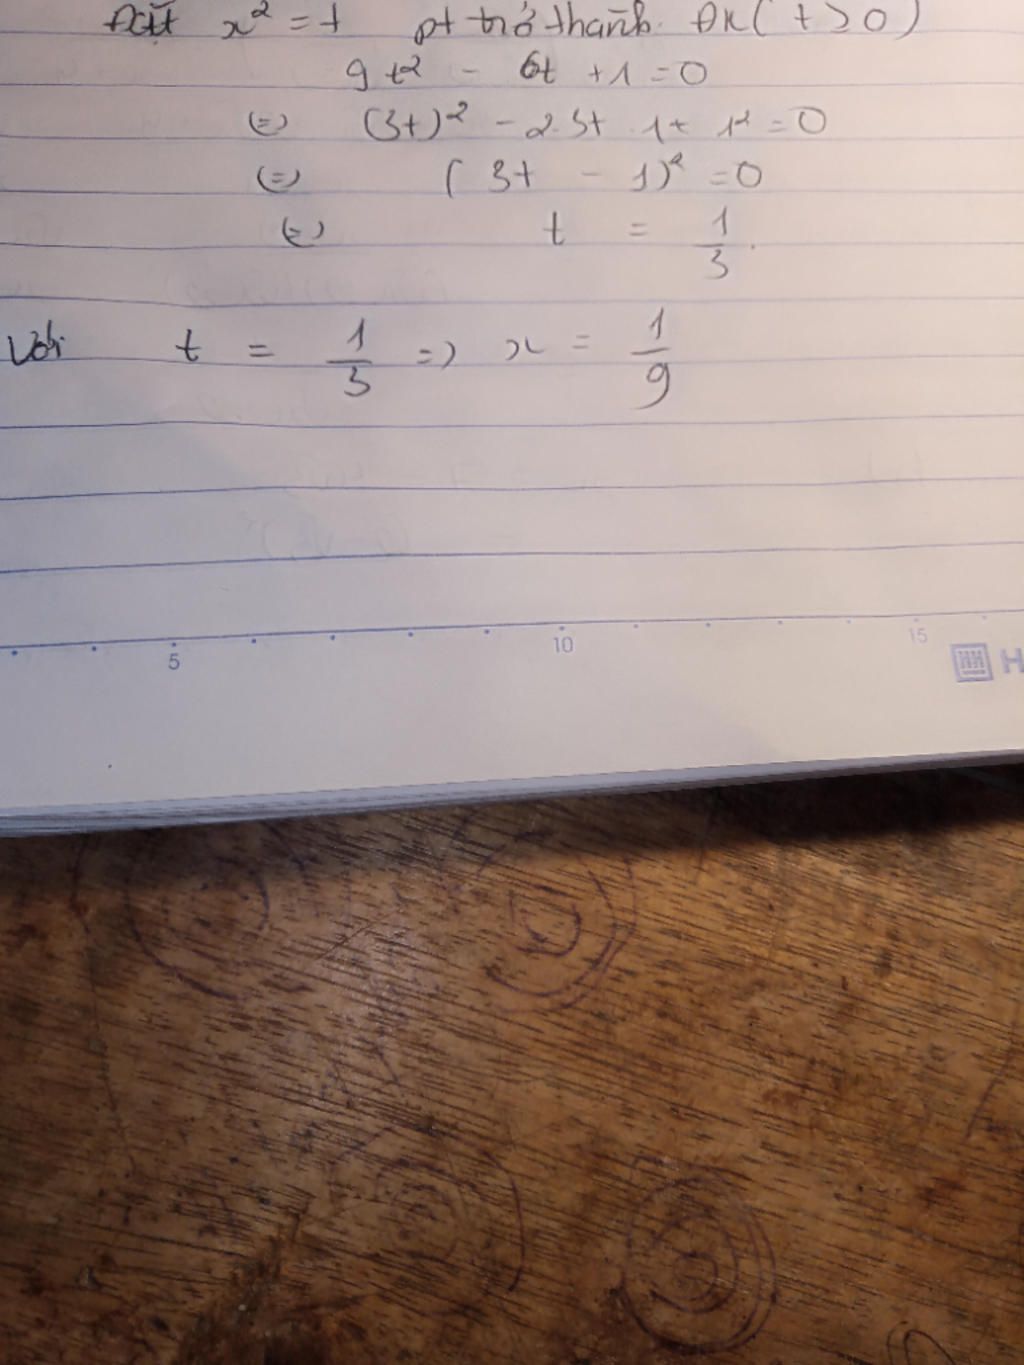 Đặt x² = t pt trở thành. ĐK ( t ≥ 0 )
9t² - 6t + 1 = 0
(=) (3t)² - 2.3t.1 + 1² = 0
(=) ( 3t - 1)² = 0
(=) t = 1/3.
Với t = 1/3 => x = 1/9
5 10 15
H